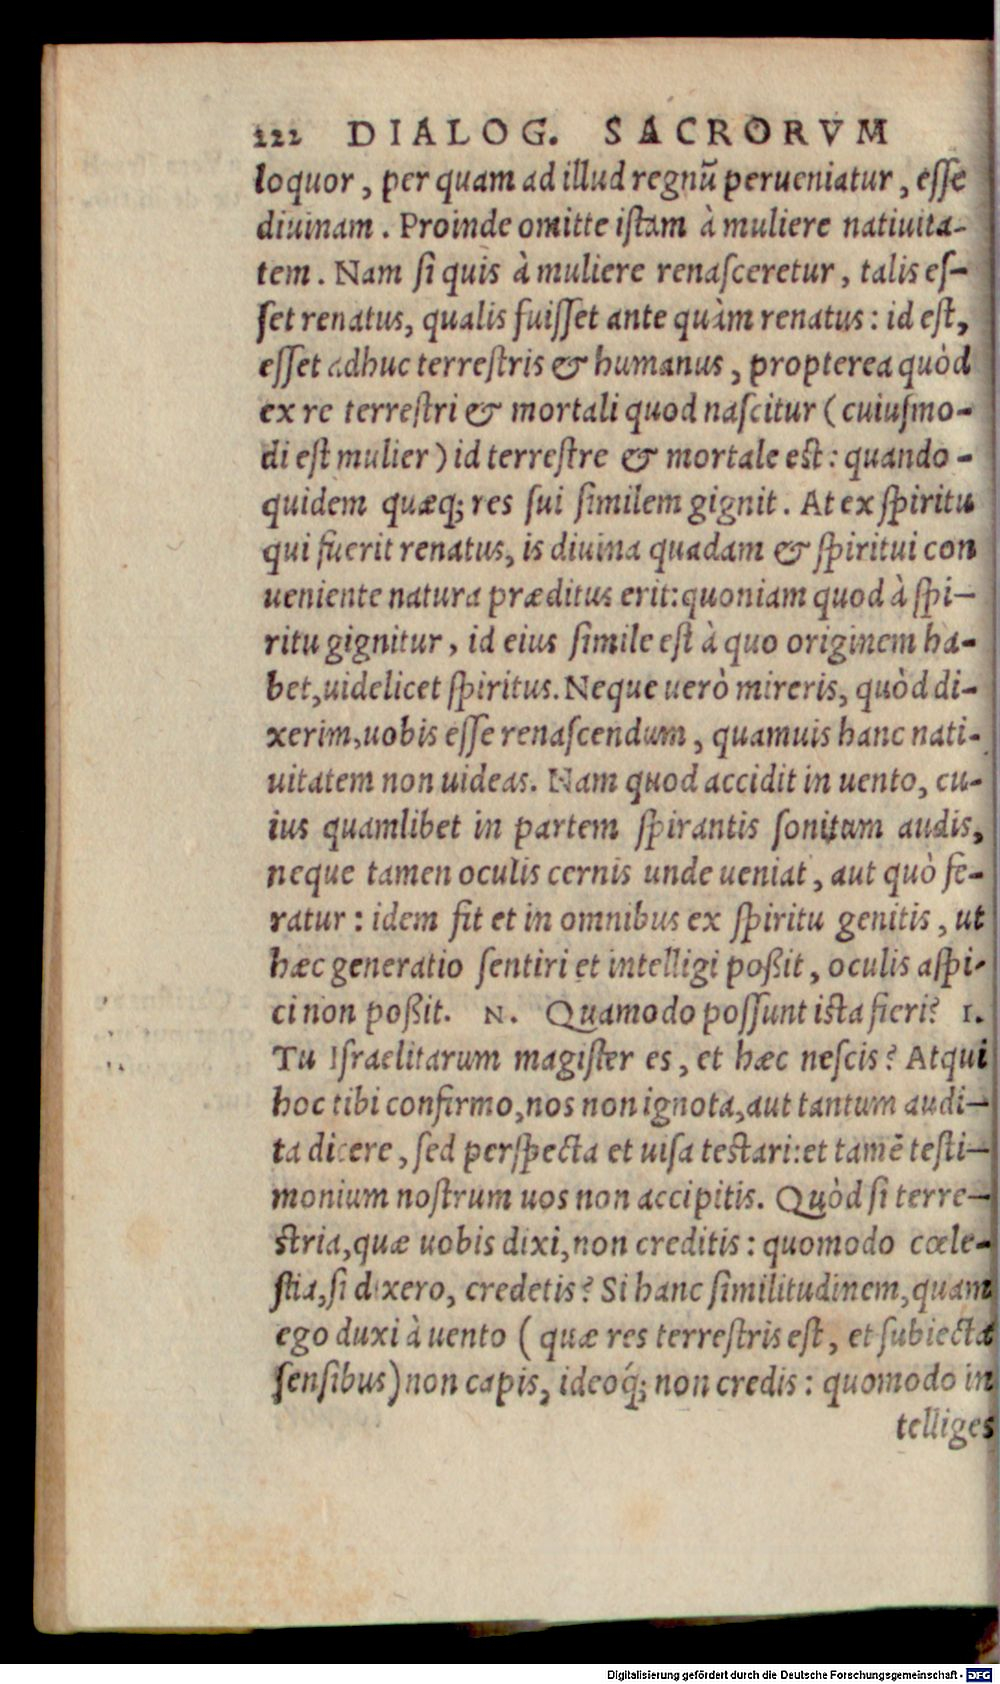 222 DIALOG. SACRORVM
loquor, per quam ad illud regnũ perueniatur, esse
diuinam. Proinde omitte istam à muliere natiuita-
tem. Nam si quis à muliere renasceretur, talis es-
set renatus, qualis fuisset ante quàm renatus: id est,
esset adhuc terrestris & humanus, propterea quòd
ex re terrestri & mortali quod nascitur (cuiusmo-
di est mulier) id terrestre & mortale est: quando-
quidem quæq; res sui similem gignit. At ex spiritu
qui fuerit renatus, is diuina quadam & spiritui con
ueniente natura præditus erit: quoniam quod à spi-
ritu gignitur, id eius simile est à quo originem ha-
bet, uidelicet spiritus. Neque uerò mireris, quòd di-
xerim, uobis esse renascendum, quamuis hanc nati-
uitatem non uideas. Nam quod accidit in uento, cu-
ius quamlibet in partem spirantis sonitum audis,
neque tamen oculis cernis unde ueniat, aut quò fe-
ratur: idem fit et in omnibus ex spiritu genitis, ut
hæc generatio sentiri et intelligi poßit, oculis aspi-
ci non poßit. N. Quamodo possunt ista fieri? I.
Tu Israelitarum magister es, et hæc nescis? Atqui
hoc tibi confirmo, nos non ignota, aut tantum audi-
ta dicere, sed perspecta et uisa testari: et tamẽ testi-
monium nostrum uos non accipitis. Quòd si terre-
stria, quæ uobis dixi, non creditis: quomodo cœle-
stia, si dixero, credetis? Si hanc similitudinem, quam
ego duxi à uento (quæ res terrestris est, et subiecta
sensibus) non capis, ideoq́; non credis: quomodo in
telliges
Digitalisierung gefördert durch die Deutsche Forschungsgemeinschaft - DFG